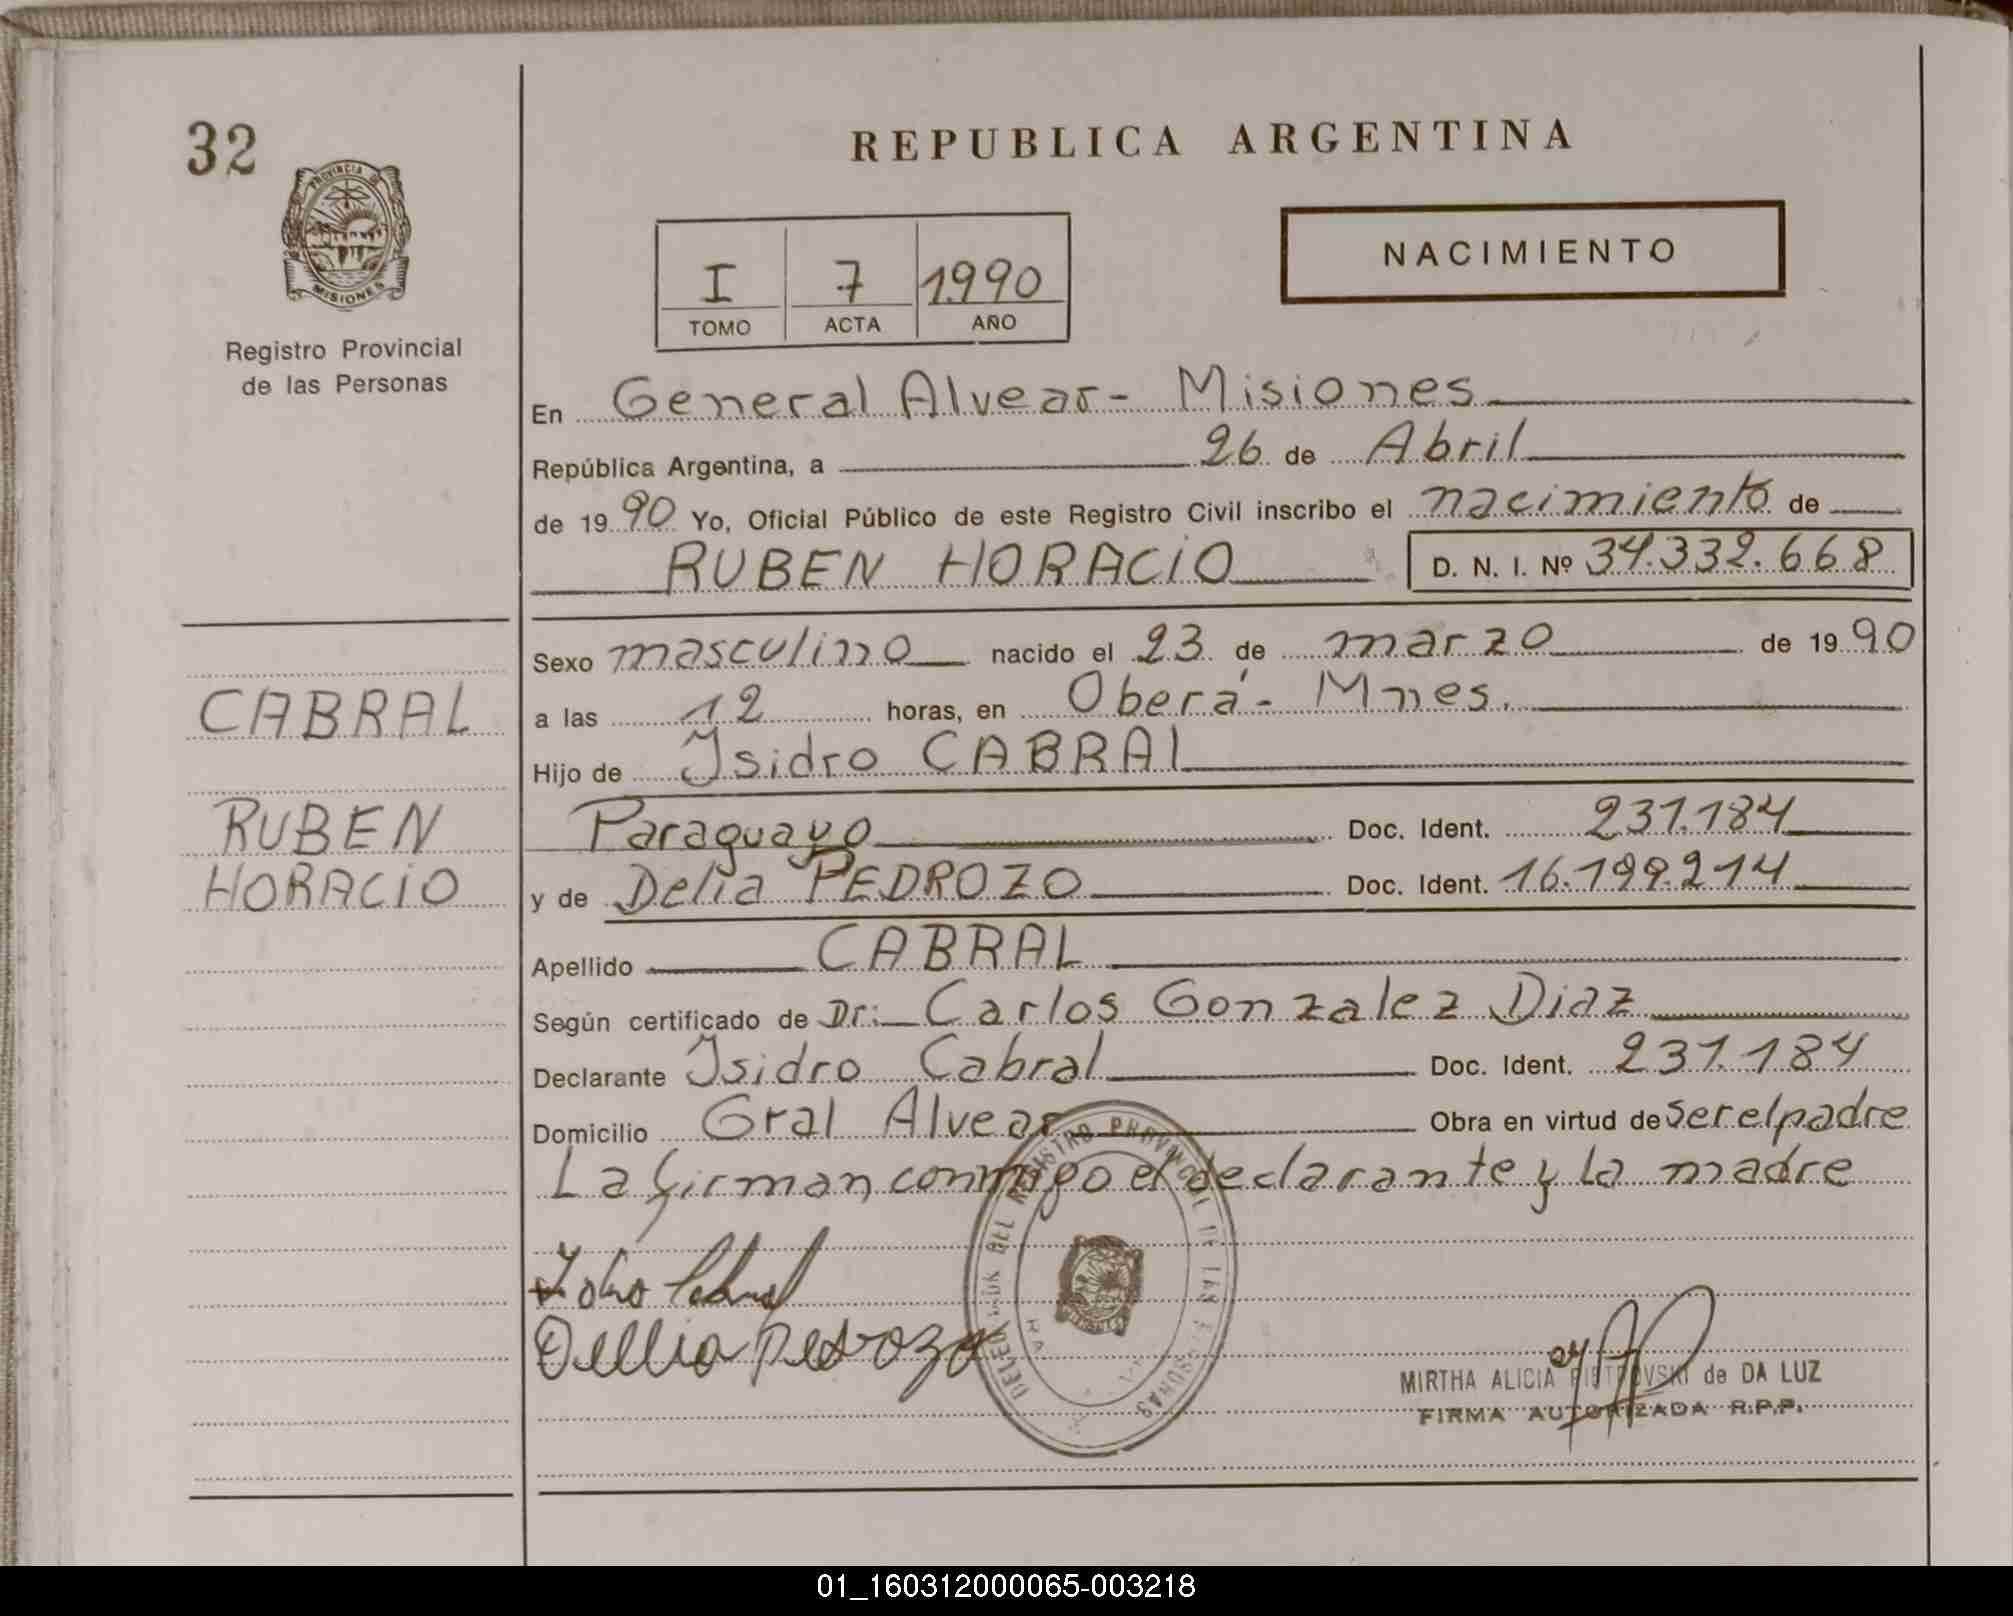 32
REPUBLICA ARGENTINA
PROVINCIA DE
MISIONES
Registro Provincial
de las Personas
I 7 1990
TOMO ACTA AÑO
NACIMIENTO
En General Alvear - Misiones
República Argentina, a 26 de Abril
de 1990 Yo, Oficial Público de este Registro Civil inscribo el nacimiento de
RUBEN HORACIO D. N. I. Nº 34.332.668
Sexo masculino nacido el 23 de marzo de 1990
a las 12 horas, en Oberá - Mnes.
Hijo de Isidro CABRAL
Paraguayo Doc. Ident. 231.184
y de Delia PEDROZO Doc. Ident. 16.199.214
Apellido CABRAL
Según certificado de Dr: Carlos Gonzalez Diaz
Declarante Isidro Cabral Doc. Ident. 231.184
Domicilio Gral Alvear Obra en virtud de ser el padre
La firman conmigo el declarante y la madre
CABRAL
RUBEN
HORACIO
Cabral
Dellia Pedrozo
PROVINCIAL DE LAS
MIRTHA ALICIA PIETROVSKI de DA LUZ
FIRMA AUTORIZADA R.P.P.
01_160312000065-003218